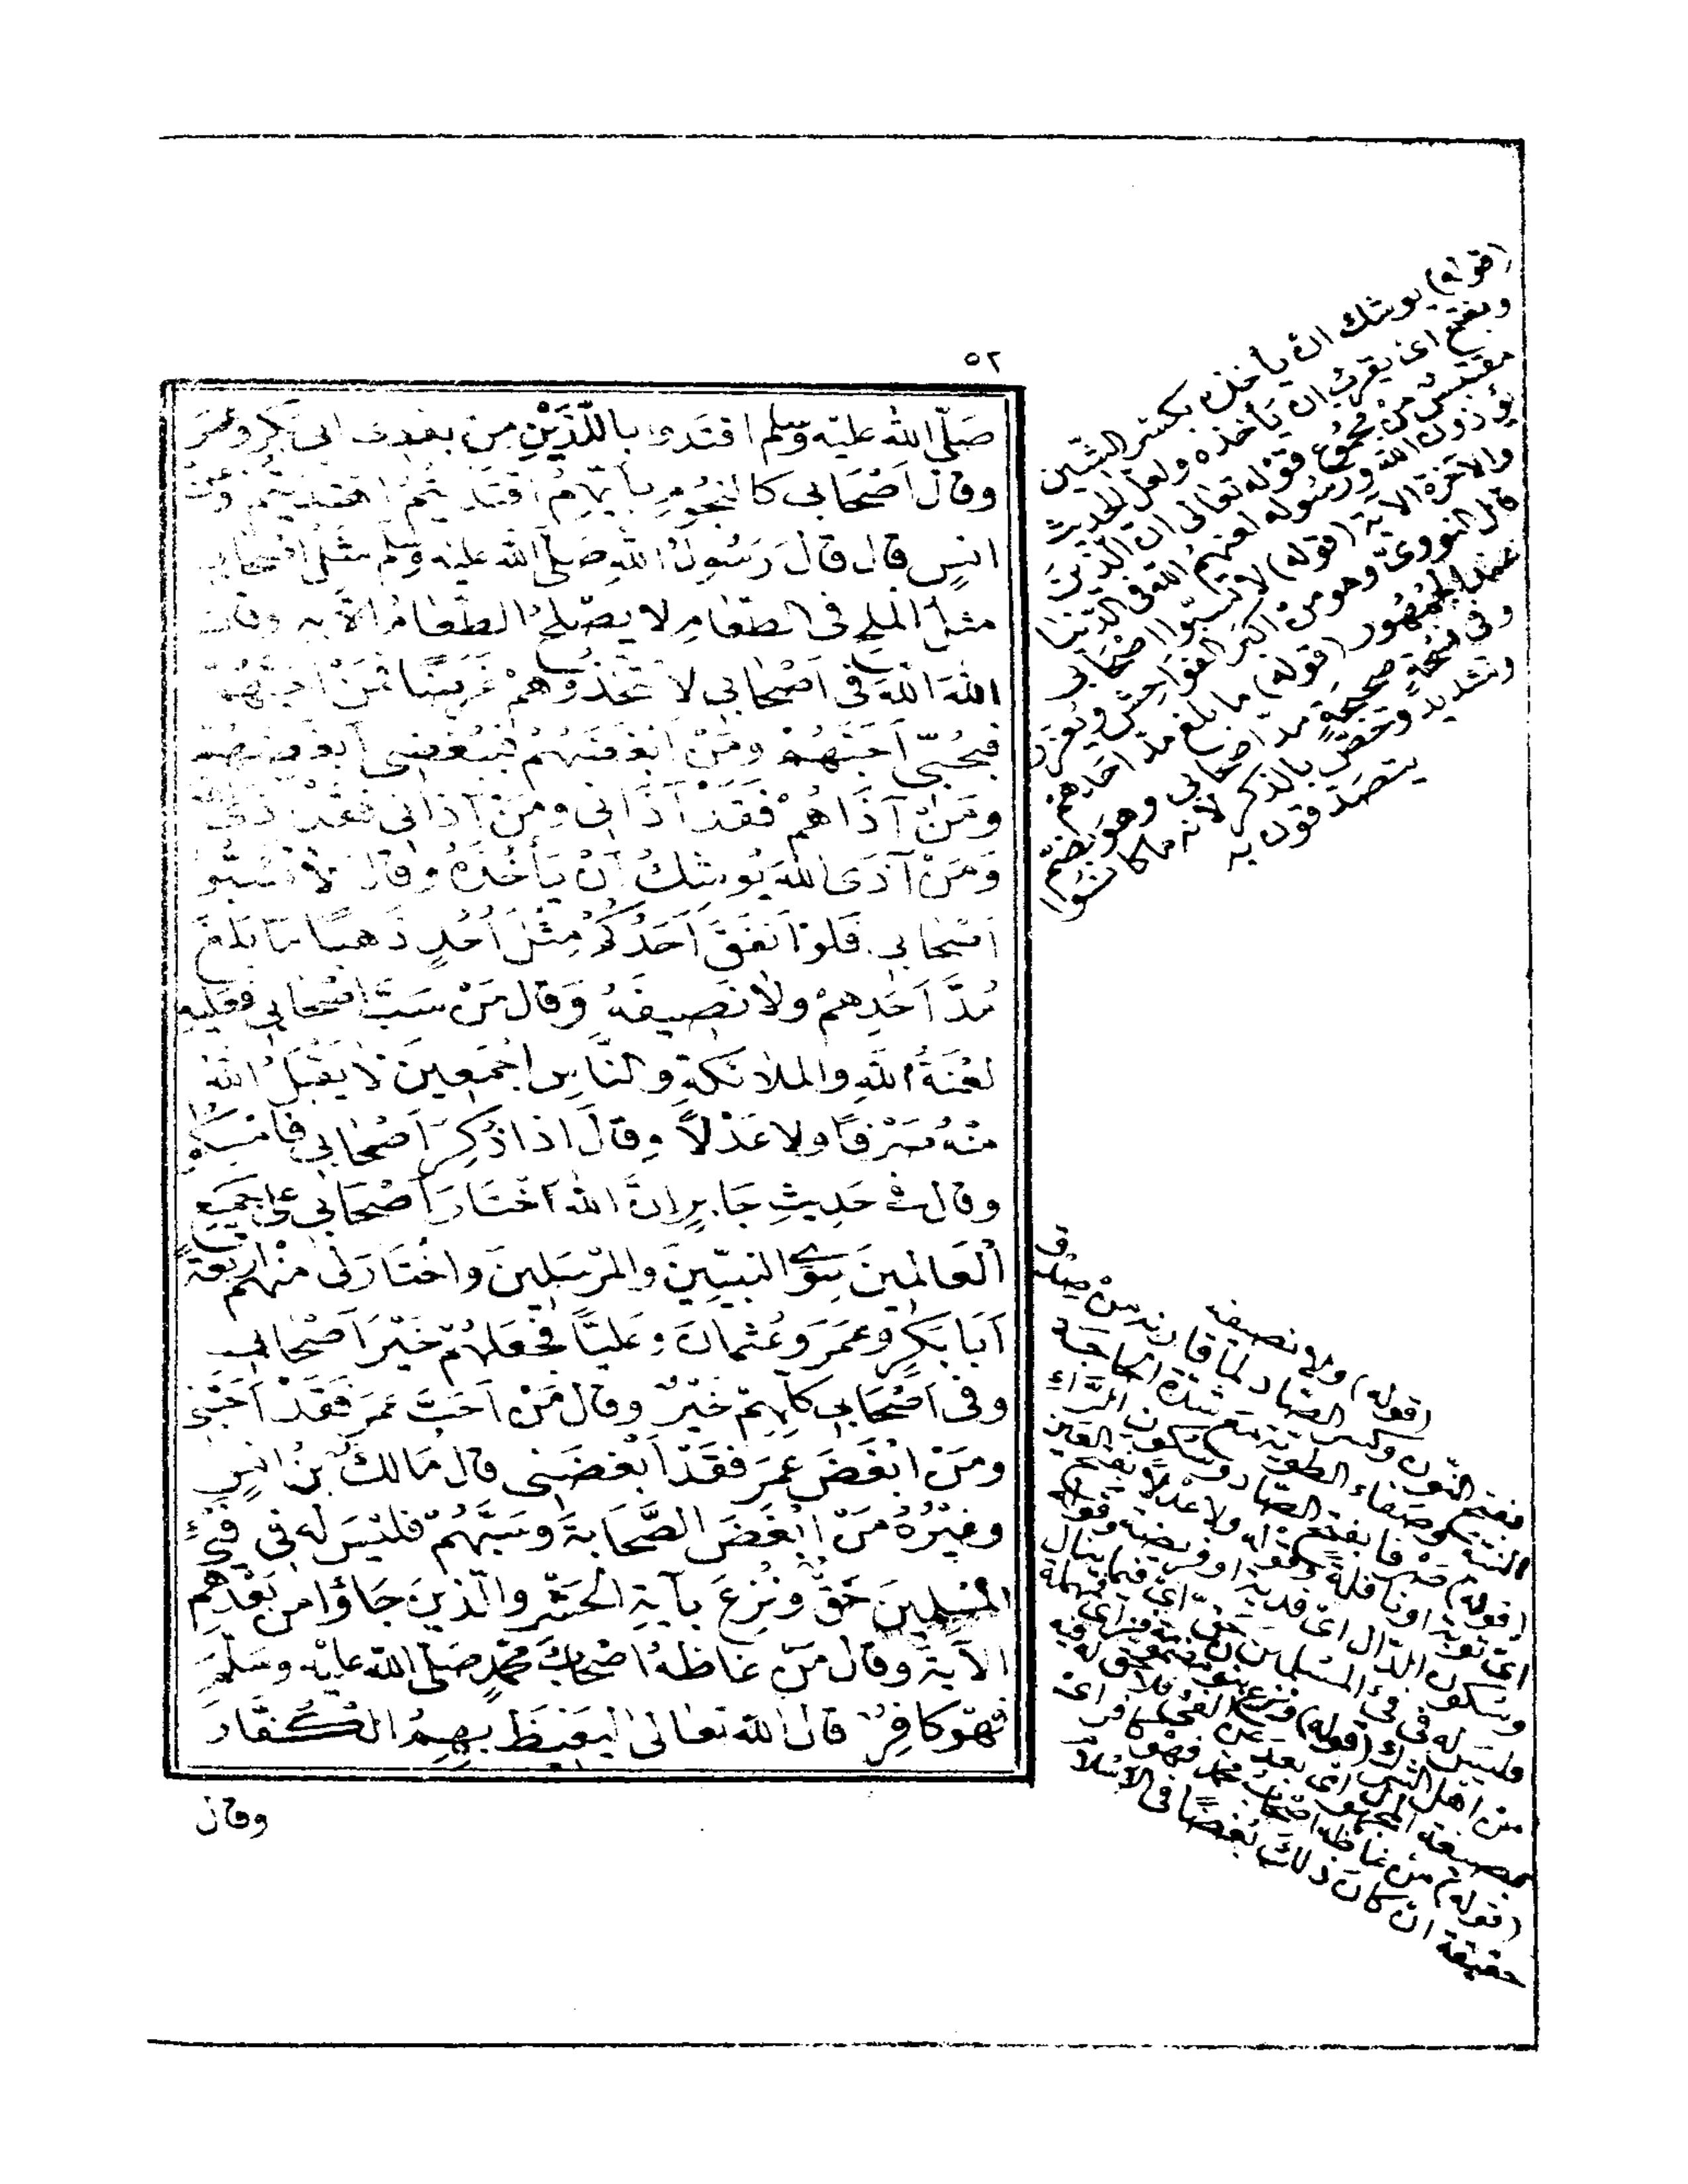 ٥٢
صَلَّى اللهُ عَلَيْهِ وَسَلَّمَ اقْتَدُوا بِاللَّذَيْنِ مِنْ بَعْدِى اَبِى بَكْرٍ وَعُمَرَ
وقال اَصْحَابى كَالنُّجُومِ بِاَيِّهِمُ اقْتَدَيْتُمُ اهْتَدَيْتُمْ وَعَنْ
انَسٍ قال قالَ رَسُولُ اللهِ صَلَّى اللهُ عَلَيْهِ وَسَلَّمَ مَثَلُ اَصْحَابى
مَثَلُ المِلْحِ فى الطَّعَامِ لا يَصْلُحُ الطَّعَامُ اِلَّا بِهِ وقال
اللهَ اللهَ فى اَصْحَابى لا تَتَّخِذُوهُمْ غَرَضًا فَمَنْ اَحَبَّهُمْ
فَبِحُبِّى اَحَبَّهُمْ ومَنْ اَبْغَضَهُمْ فَبِبُغْضِى اَبْغَضَهُمْ
ومَنْ آذَاهُمْ فَقَدْ آذَانى ومَنْ آذَانى فَقَدْ آذَى اللهَ
وَمَنْ آذَى اللهَ يُوشِكُ اَنْ يَأْخُذَهُ وقال لا تَسُبُّوا
اَصْحَابى فَلَوْ اَنْفَقَ اَحَدُكُمْ مِثْلَ اُحُدٍ ذَهَبًا مَا بَلَغَ
مُدَّ اَحَدِهِمْ ولا نَصِيفَهُ وَقال مَنْ سَبَّ اَصْحَابى فَعَلَيْهِ
لَعْنَةُ اللهِ والملائكةِ والنَّاسِ اَجْمَعِينَ لا يَقْبَلُ اللهُ
مِنْهُ صَرْفًا ولا عَدْلًا وقالَ اذا ذُكِرَ اَصْحَابى فَامْسِكُوا
وقال فى حَدِيثِ جَابِرٍ اِنَّ اللهَ اخْتَارَ اَصْحَابى عَلَى جَمِيعِ
الْعَالَمِينَ سِوَى النَّبِيِّينَ والمُرْسَلِينَ واخْتَارَ لى مِنْهُمْ اَرْبَعَةً
اَبَا بَكْرٍ وعُمَرَ وَعُثْمَانَ وَعَلِيًّا فَجَعَلَهُمْ خَيْرَ اَصْحَابى
وفى اَصْحَابى كُلِّهِمْ خَيْرٌ وقال مَنْ اَحَبَّ عُمَرَ فَقَدْ اَحَبَّنِى
ومَنْ اَبْغَضَ عُمَرَ فَقَدْ اَبْغَضَنى قال مَالكُ بْنُ انَسٍ
وغَيْرُهُ مَنْ اَبْغَضَ الصَّحَابَةَ وَسَبَّهُمْ فَلَيْسَ لَهُ فى فَىْءِ
المُسْلِمِينَ حَقٌّ ونُزِعَ بِآيَةِ الْحَشْرِ والَّذِينَ جَاؤُا مِنْ بَعْدِهِمْ
الآيَةَ وقالَ مَنْ غَاظَهُ اَصْحَابُ مُحَمَّدٍ صَلَّى اللهُ عَلَيْهِ وَسَلَّمَ
فَهُوَ كَافِرٌ قال اللهُ تعَالى لِيَغِيظَ بِهِمُ الْكُفَّارَ
وقال
(قوله) يوشك ان يأخذه بكسر الشين
وبفتح اى يقرب ان يأخذه ولعل الحديث
مقتبس من مجموع قوله تعالى ان الذين
يؤذون الله ورسوله لعنهم الله فى الدنيا
والاخرة الاية (قوله) لا تسبوا اصحابى
قال النووى وهو من اكبر الفواحش ويعزر
عند الجمهور (قوله) ما بلغ مد احدهم
وفى نسخة صحيحة مد اصحابى وهو بضم
وتشديد وخص بالذكر لانه ما كانوا
يتصدقون به
(قوله) ولا نصيفه
فبفتح النون وكسر الصاد لما قارنه من صدق
النية وصفاء الطوية مع شدة الحاجة
(قوله) صرفا بفتح الصاد وسكون الراء
اى توبة او نافلة وقوله ولا عدلا بفتح العين
وسكون الدال اى فدية او فريضة وقوله
فليس له فى فئ المسلمين حق اى فيما ينال
من اهل الشرك (قوله) ونزع
بصيغة المجهول
(قوله) من غاظه اصحاب محمد فهو كافر اى
حقيقة ان كان ذلك بغضا فى الاسلام